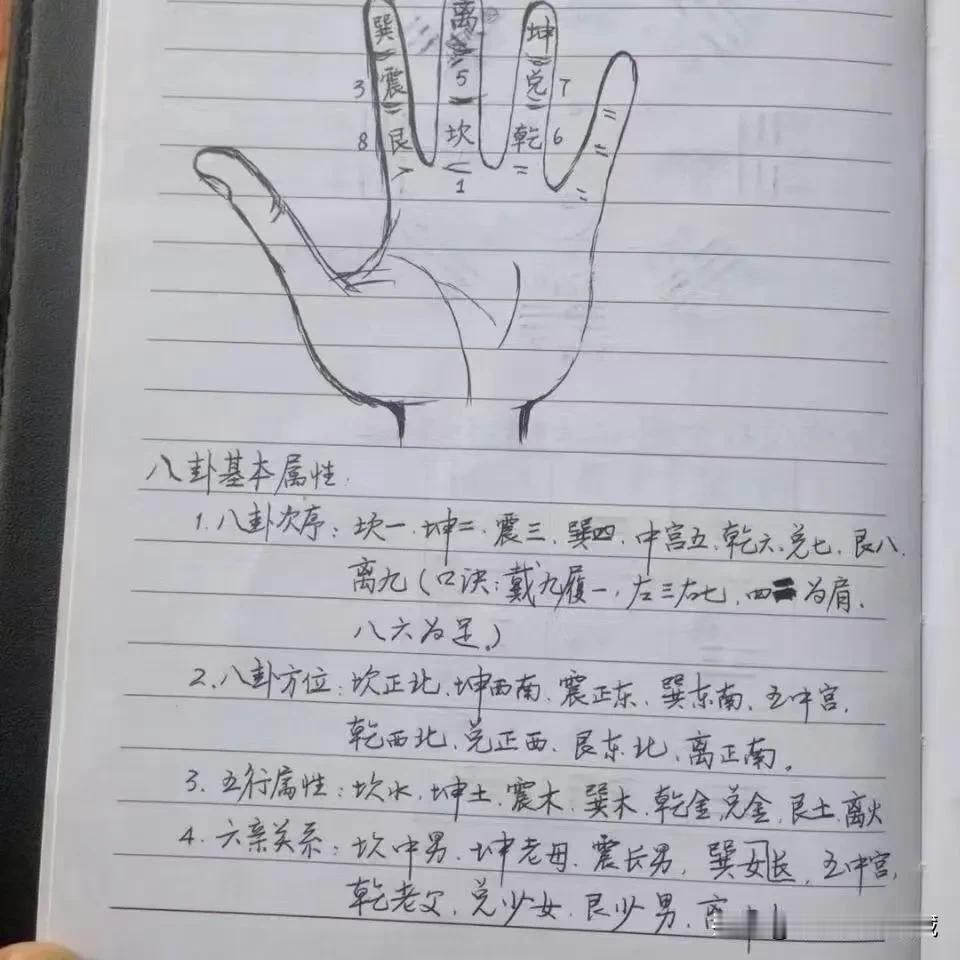 巽 离 坤
3 震 5 兑 7
8 艮 坎 乾 6
1
八卦基本属性:
1.八卦次序:坎一、坤二、震三、巽四、中宫五、乾六、兑七、艮八、
离九(口诀:戴九履一,左三右七,四二为肩,
八六为足。)
2.八卦方位:坎正北、坤西南、震正东、巽东南、五中宫,
乾西北、兑正西、艮东北、离正南。
3.五行属性:坎水、坤土、震木、巽木、乾金、兑金、艮土、离火
4.六亲关系:坎中男、坤老母、震长男、巽女长、五中宫,
乾老父、兑少女、艮少男、离中